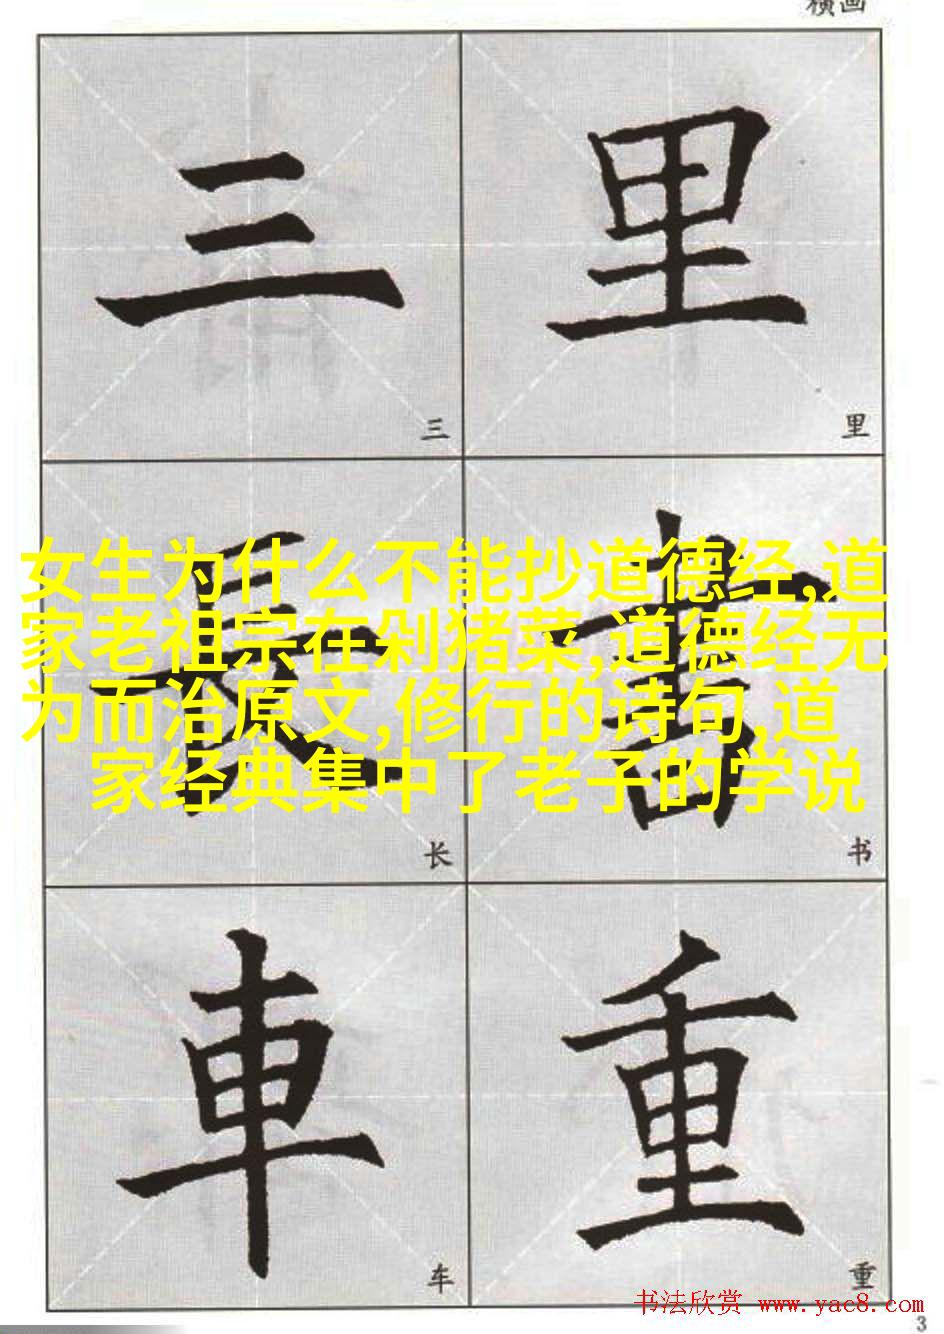 横画
三 里
三 里
女生为什么不能抄道德经,道
家老祖宗在剁猪菜,道德经无
为而治原文,修行的诗句,道
家经典集中了老子的学说
長 書
长 书
車 重
车 重
书法欣赏 www.yac8.com
3